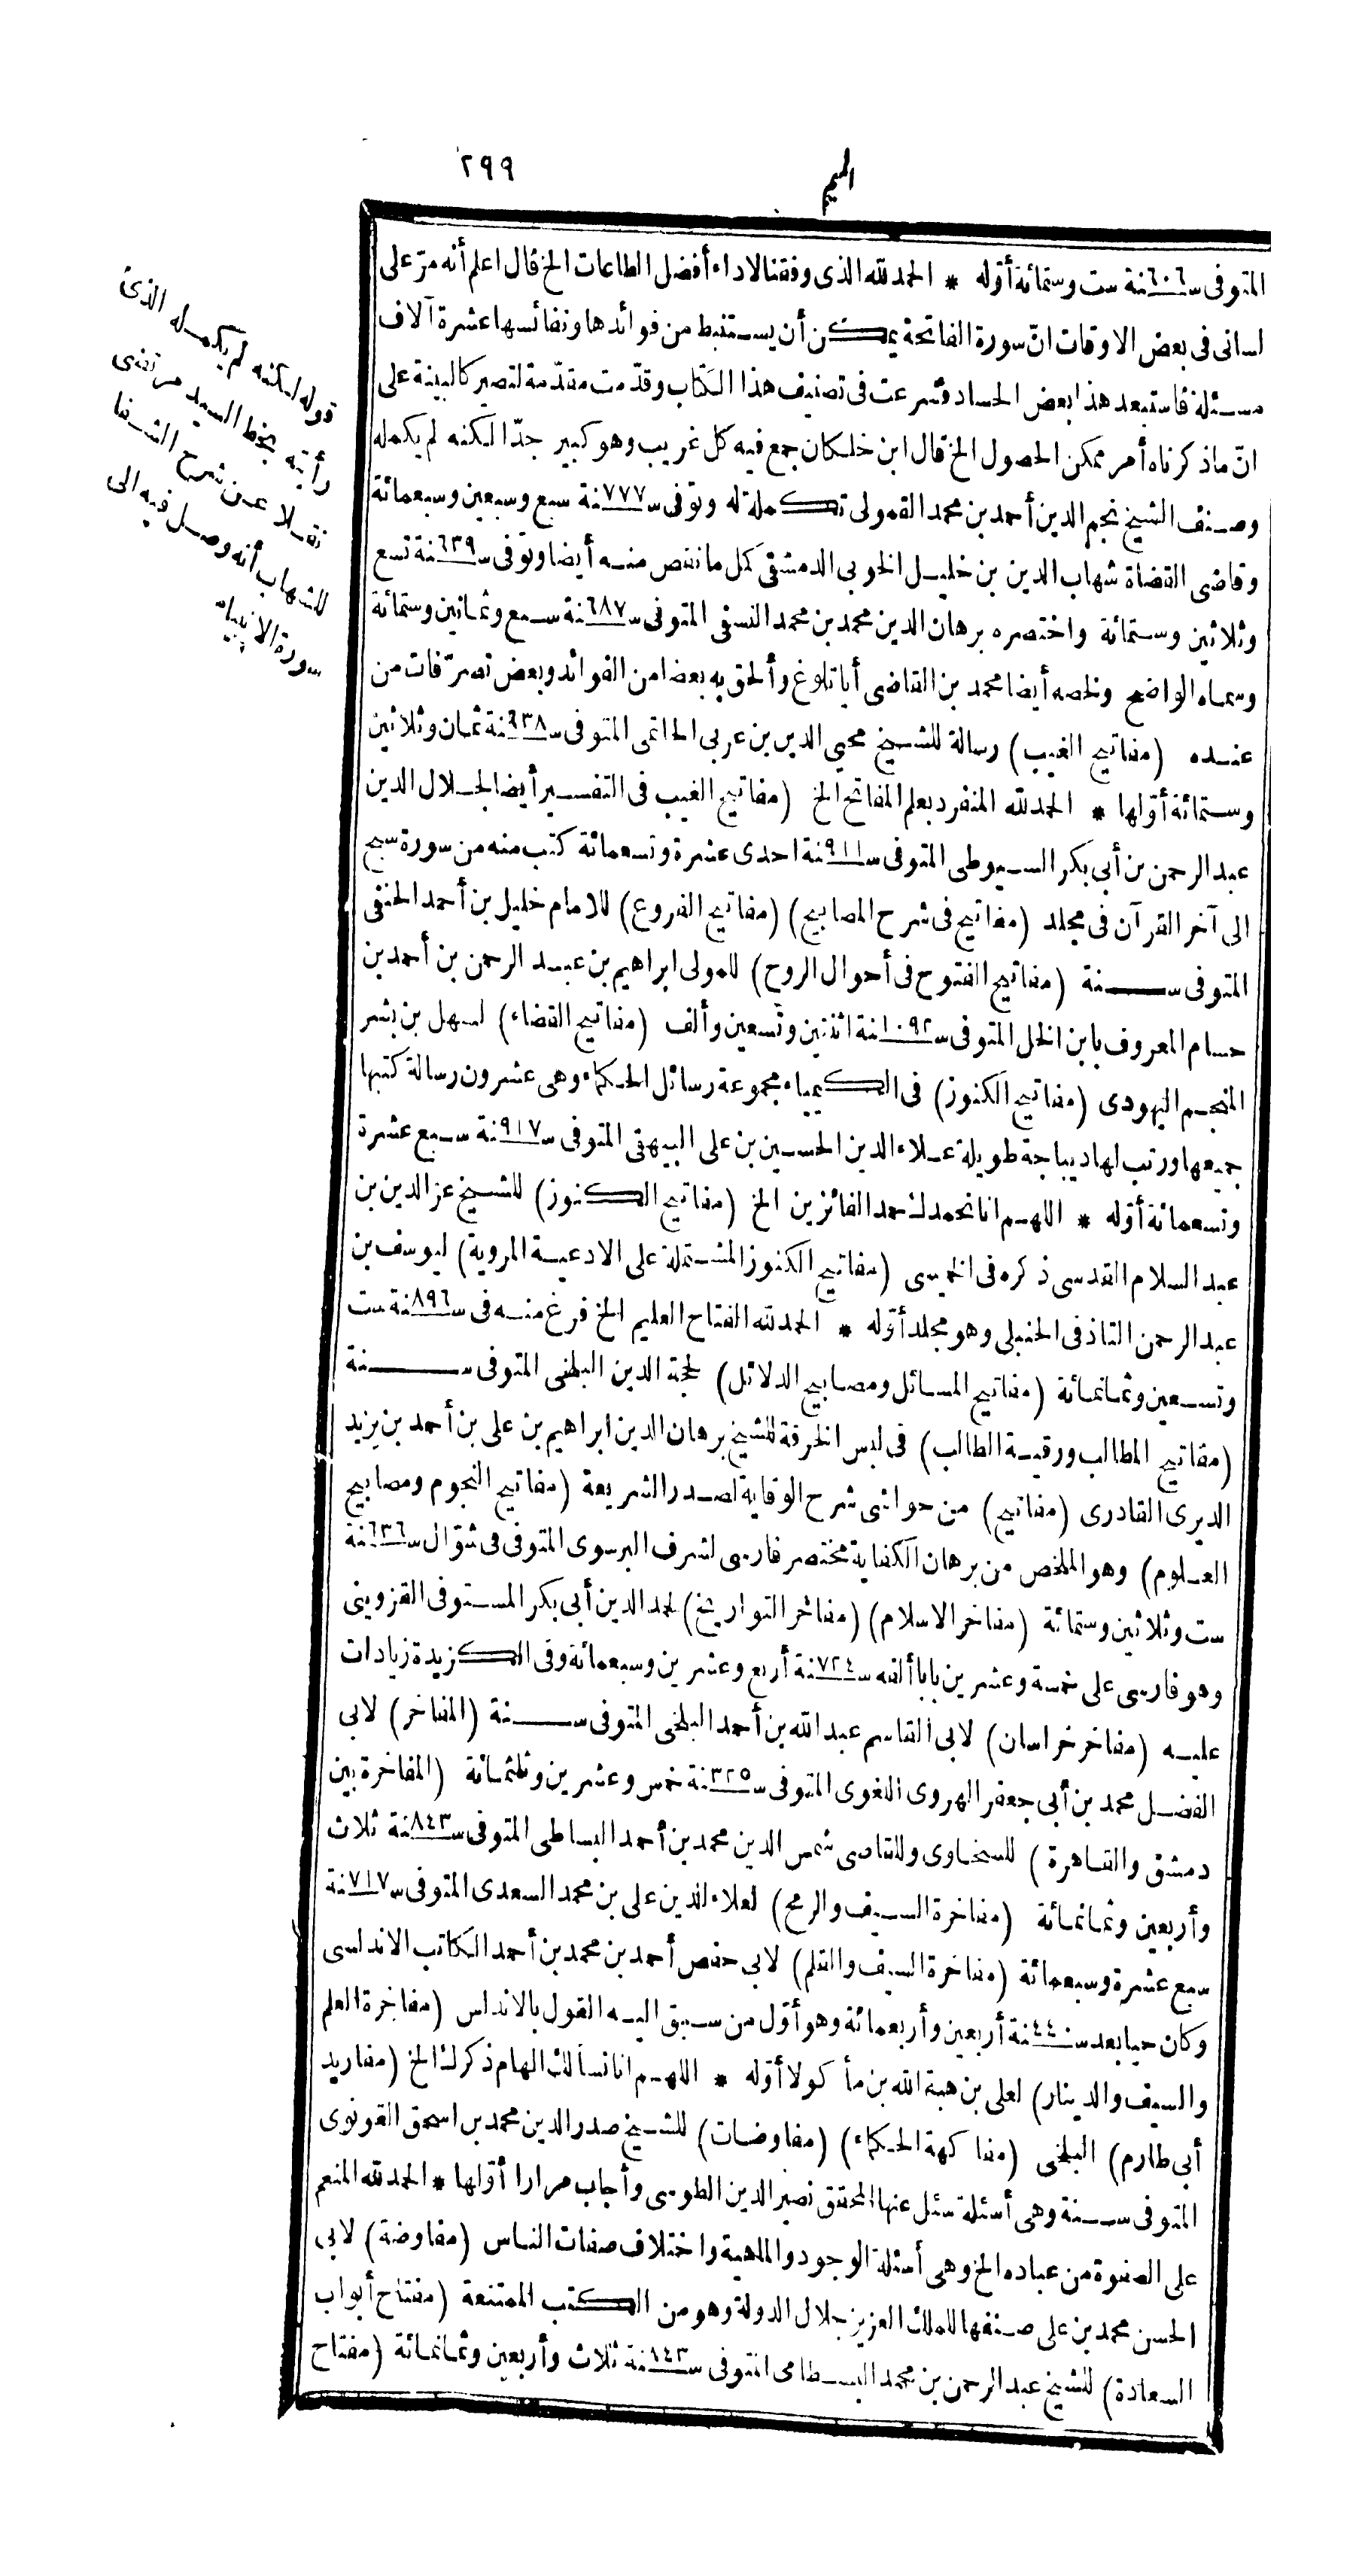 الميم
٢٩٩
المتوفى سـ٦٠٦ـنة ست وستمائة أوّله * الحمد لله الذى وفقنا لاداء أفضل الطاعات الخ قال اعلم أنه مرّ على
لسانى فى بعض الاوقات انّ سورة الفاتحة يمكن أن يستنبط من فوائدها ونفائسها عشرة آلاف
مسئلة فاستبعد هذا بعض الحساد فشرعت فى تصنيف هذا الكتاب وقدّمت مقدّمة لتصير كالبينة على
انّ ماذكرناه أمر ممكن الحصول الخ قال ابن خلكان جمع فيه كل غريب وهو كبير جدّا لكنه لم يكمله
وصنف الشيخ نجم الدين أحمد بن محمد القمولى تكملة له وتوفى سـ٧٧٧ـنة سبع وسبعين وسبعمائة
وقاضى القضاة شهاب الدين بن خليل الخوبى الدمشقى كمل ما نقص منه أيضا وتوفى سـ٦٣٩ـنة تسع
وثلاثين وستمائة واختصره برهان الدين محمد بن محمد النسفى المتوفى سـ٦٨٧ـنة سبع وثمانين وستمائة
وسماه الواضح ولخصه أيضا محمد بن القاضى أياثلوغ وألحق به بعضا من الفوائد وبعض تصرّفات من
عنده (مفاتيح الغيب) رسالة للشيخ محيى الدين بن عربى الحاتمى المتوفى سـ٦٣٨ـنة ثمان وثلاثين
وستمائة أوّلها * الحمد لله المنفرد بعلم المفاتح الخ (مفاتيح الغيب فى التفسير أيضا لجلال الدين
عبد الرحمن بن أبى بكر السيوطى المتوفى سـ٩١١ـنة احدى عشرة وتسعمائة كتب منه من سورة سبح
الى آخر القرآن فى مجلد (مفاتيح فى شرح المصابيح) (مفاتيح الفروع) للامام خليل بن أحمد الحنفى
المتوفى سـنة (مفاتيح الفتوح فى أحوال الروح) للمولى ابراهيم بن عبد الرحمن بن أحمد بن
حسام المعروف بابن الخل المتوفى سـ١٠٩٢ـنة اثنين وتسعين وألف (مفاتيح القضاء) لسهل بن بشر
المنجم اليهودى (مفاتيح الكنوز) فى الكيمياء مجموعة رسائل الحكماء وهى عشرون رسالة كتبها
جميعها ورتب لها ديباجة طويلة علاء الدين الحسين بن على البيهقى المتوفى سـ٩١٧ـنة سبع عشرة
وتسعمائة أوّله * اللهم انا نحمدك حمد الفائزين الخ (مفاتيح الكنوز) للشيخ عز الدين بن
عبد السلام القدسى ذكره فى الخميسى (مفاتيح الكنوز المشتملة على الادعية المروية) ليوسف بن
عبد الرحمن التاذفى الحنبلى وهو مجلد أوّله * الحمد لله الفتاح العليم الخ فرغ منه فى سـ٨٩٦ـنة ست
وتسعين وثمانمائة (مفاتيح المسائل ومصابيح الدلائل) لحجة الدين البلخى المتوفى سـنة
(مفاتيح المطالب ورقية الطالب) فى لبس الخرقة للشيخ برهان الدين ابراهيم بن على بن أحمد بن يزيد
الديرى القادرى (مفاتيح) من حواشى شرح الوقاية لصدر الشريعة (مفاتيح النجوم ومصابيح
العلوم) وهو الملخص من برهان الكفاية مختصر فارسى لشرف البرسوى المتوفى فى شوّال سـ٦٣٦ـنة
ست وثلاثين وستمائة (مفاخر الاسلام) (مفاخر التواريخ) لحمد الدين أبى بكر المستوفى القزوينى
وهو فارسى على خمسة وعشرين بابا ألفه سـ٧٢٤ـنة أربع وعشرين وسبعمائة وفى الكزيدة زيادات
عليه (مفاخر خراسان) لابى القاسم عبد الله بن أحمد البلخى المتوفى سـنة (المفاخر) لابى
الفضل محمد بن أبى جعفر الهروى اللغوى المتوفى سـ٣٢٥ـنة خمس وعشرين وثلثمائة (المفاخرة بين
دمشق والقاهرة) للسخاوى وللقاضى شمس الدين محمد بن أحمد البساطى المتوفى سـ٨٤٣ـنة ثلاث
وأربعين وثمانمائة (مفاخرة السيف والرمح) لعلاء الدين على بن محمد السعدى المتوفى سـ٧١٧ـنة
سبع عشرة وسبعمائة (مفاخرة السيف والقلم) لابى حفص أحمد بن محمد بن أحمد الكاتب الاندلسى
وكان حيا بعد سـ٤٤٠ـنة أربعين وأربعمائة وهو أوّل من سبق اليه القول بالاندلس (مفاخرة العلم
والسيف والدينار) لعلى بن هبة الله بن مأكولا أوّله * اللهم انا نسألك الهام ذكرك الخ (مفاريد
أبى طارم) البلخى (مفاكهة الحكماء) (مفاوضات) للشيخ صدر الدين محمد بن اسحق القونوى
المتوفى سـنة وهى أسئلة سئل عنها المحقق نصير الدين الطوسى وأجاب مرارا أوّلها * الحمد لله المنعم
على الصفوة من عباده الخ وهى أسئلة الوجود والماهية واختلاف صفات الناس (مفاوضة) لابى
الحسن محمد بن على صنفها للملك العزيز جلال الدولة وهو من الكتب الممتنعة (مفتاح أبواب
السعادة) للشيخ عبد الرحمن بن محمد البسطامى المتوفى سـ٨٤٣ـنة ثلاث وأربعين وثمانمائة (مفتاح
قوله لكنه لم يكمله الذى
رأيته بخط السيد مرتضى
نقلا عن شرح الشفا
للشهاب أنه وصل فيه الى
سورة الانبياء